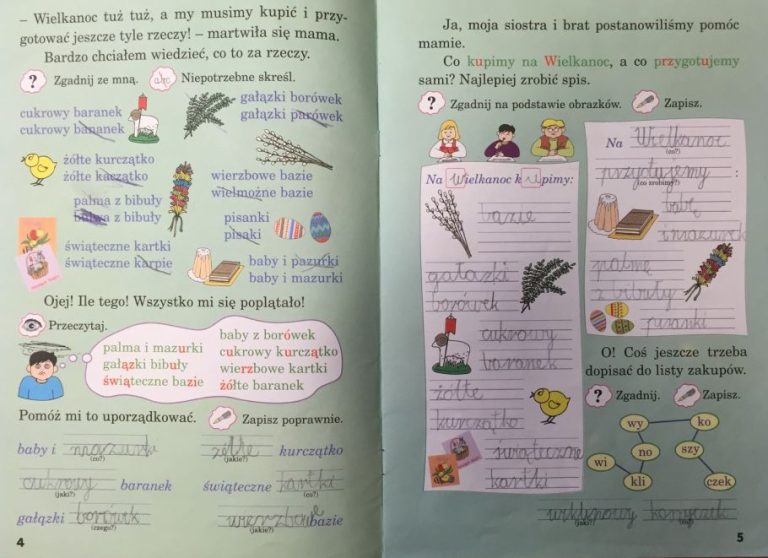 – Wielkanoc tuż tuż, a my musimy kupić i przy-
gotować jeszcze tyle rzeczy! – martwiła się mama.
Bardzo chciałem wiedzieć, co to za rzeczy.
? Zgadnij ze mną. abc Niepotrzebne skreśl.
cukrowy baranek
cukrowy bananek
gałązki borówek
gałązki parówek
żółte kurczątko
żółte kaczątko
wierzbowe bazie
wielmożne bazie
palma z bibuły
bulwa z bibuły
pisanki
pisaki
świąteczne kartki
świąteczne karpie
baby i pazurki
baby i mazurki
Ojej! Ile tego! Wszystko mi się poplątało!
Przeczytaj.
palma i mazurki
gałązki bibuły
świąteczne bazie
baby z borówek
cukrowy kurczątko
wierzbowe kartki
żółte baranek
Pomóż mi to uporządkować. Zapisz poprawnie.
baby i mazurki żółte kurczątko
(co?) (jakie?)
cukrowy baranek świąteczne kartki
(jaki?) (co?)
gałązki borówek wierzbowe bazie
(czego?) (jakie?)
4
Ja, moja siostra i brat postanowiliśmy pomóc
mamie.
Co kupimy na Wielkanoc, a co przygotujemy
sami? Najlepiej zrobić spis.
? Zgadnij na podstawie obrazków. Zapisz.
Na Wielkanoc kupimy:
bazie
gałązki
borówek
cukrowy
baranek
żółte
kurczątko
świąteczne
kartki
Na Wielkanoc
(co?)
przygotujemy :
(co zrobimy?)
babę
i mazurek
palmę
z bibuły
pisanki
O! Coś jeszcze trzeba
dopisać do listy zakupów.
? Zgadnij. Zapisz.
wy
ko
no
szy
wi
kli
czek
wiklinowy koszyczek
(jaki?) (co?)
5